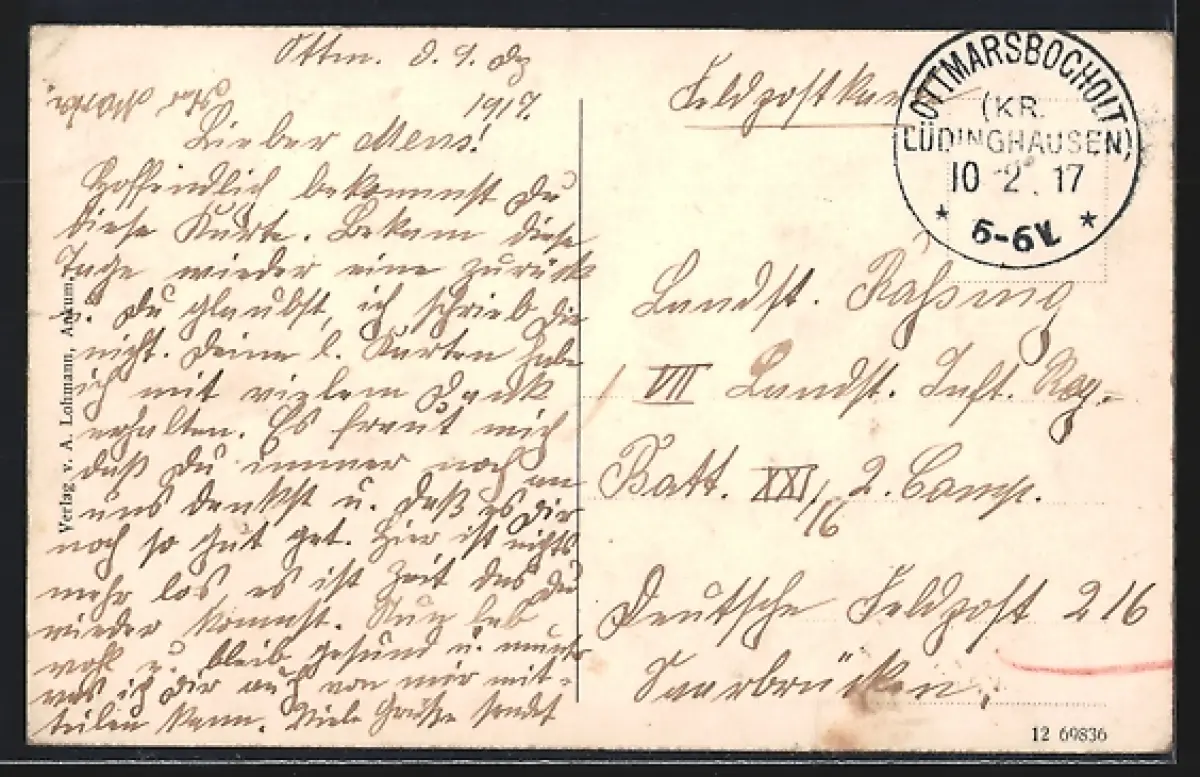 Ottm. d. 9. 
1917.
Lieber Mens!
Hoffendlich bekommst Du
diese Karte. Bekam diese
Tage wieder eine zurück
u. Du glaubst, ich schrieb Dir
nicht. Deine l. Karten habe
ich mit vielem Dank
erhalten. Es freut mich
daß Du immer noch an
uns denkst u. daß es Dir
noch so gut get. Hier ist nichts
mehr los, es ist Zeit das Du
wieder kommst. Nun leb
wohl u. bleibe gesund u. munter
was ich Dir auch von mir mit-
teilen kann. Viele Grüße sendet
Verlag v. A. Lohmann, Ankum.
Feldpostkarte
OTTMARSBOCHOLT
(KR.
LÜDINGHAUSEN)
10 2. 17
* 5-6 V. *
Landst.
VII Landst. Inft. Reg.
Batt. XXI/16 2. Comp.
Deutsche Feldpost 216
Saarbrücken.
12 69836